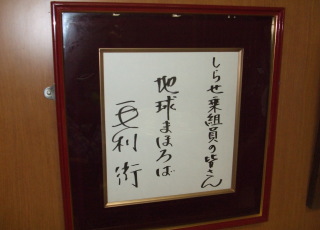 しらせ乗組員の皆さん
地球まほろば
毛利衛